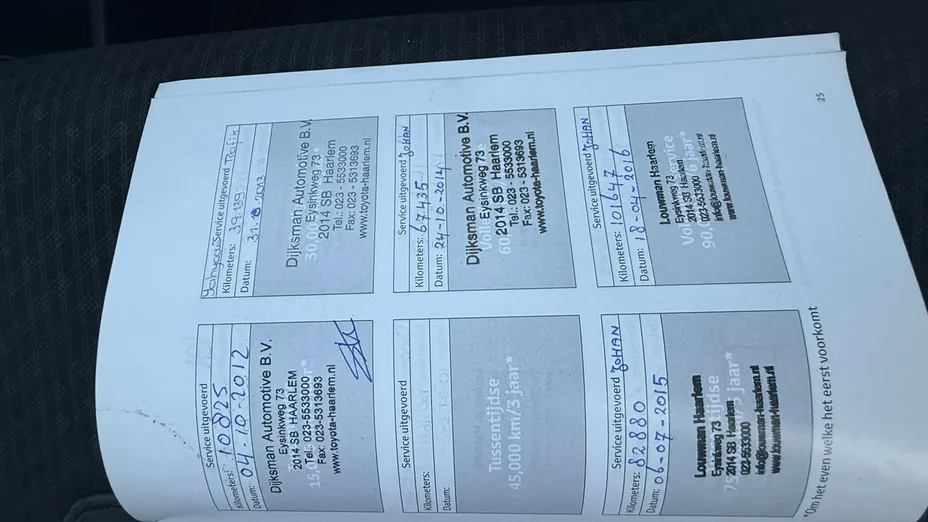 Service uitgevoerd
Kilometers: 10825
Datum: 04-10-2012
Dijksman Automotive B.V.
Eysinkweg 73
2014 SB HAARLEM
Tel: 023-5533000
Fax: 023-5313693
www.toyota-haarlem.nl
Service uitgevoerd
Kilometers: 39.39
Datum:
30,00
Dijksman Automotive B.V.
Eysinkweg 73
2014 SB Haarlem
Tel.: 023 - 5533000
Fax: 023 - 5313693
www.toyota-haarlem.nl
Service uitgevoerd
Kilometers:
Datum:
Tussentijdse
45,000 km/3 jaar*
Service uitgevoerd JOHAN
Kilometers: 67435
Datum: 24-10-2014
Dijksman Automotive B.V.
Eysinkweg 73
2014 SB Haarlem
Tel.: 023 - 5533000
Fax: 023 - 5313693
www.toyota-haarlem.nl
Service uitgevoerd JOHAN
Kilometers: 82880
Datum: 06-07-2015
Louwman Haarlem
Eysinkweg 73
2014 SB Haarlem
023-5533000
info@louwman-haarlem.nl
www.louwman-haarlem.nl
Service uitgevoerd JOHAN
Kilometers: 101647
Datum: 18-04-2016
Louwman Haarlem
Eysinkweg 73
2014 SB Haarlem
023-5533000
info@louwman-haarlem.nl
www.louwman-haarlem.nl
*Om het even welke het eerst voorkomt
25